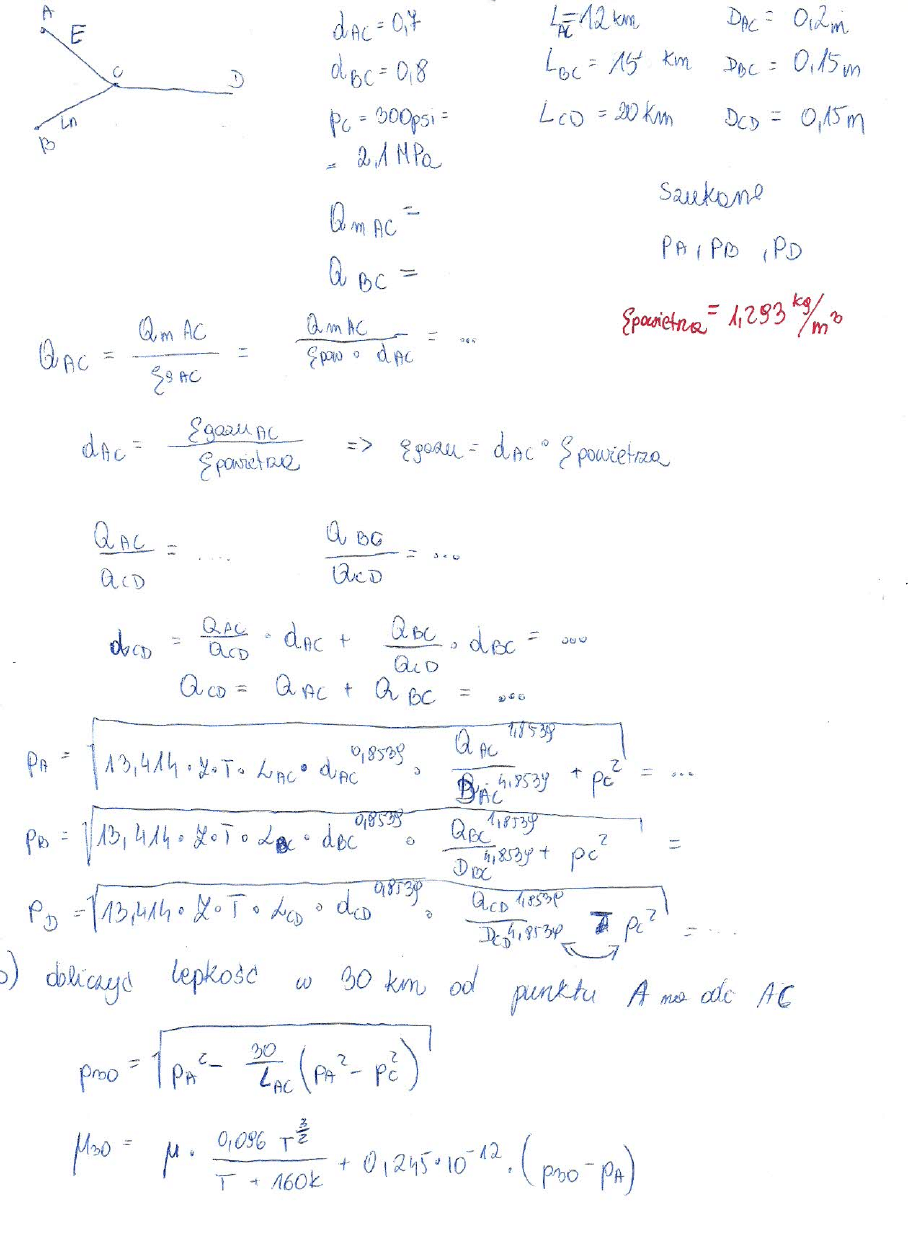 A
E
C
D
B
Ln
d_AC = 0,7   L_AC = 12 km   D_AC = 0,2m
d_BC = 0,8   L_BC = 15 km   D_BC = 0,15m
p_C = 300psi =   L_CD = 20km   D_CD = 0,15m
= 2,1 MPa
Szukane
Q_mAC =
p_A, p_B, p_D
Q_BC =
ξpowietrza = 1,293 kg/m³
Q_AC = Q_mAC / ξgAC = Q_mAC / (ξpow ∘ d_AC) = ...
d_AC = ξgazu_AC / ξpowietrza => ξgazu = d_AC ∘ ξpowietrza
Q_AC / Q_CD = ....   Q_BC / Q_CD = ...
d_CD = Q_AC/Q_CD · d_AC + Q_BC/Q_CD · d_BC = ...
Q_CD = Q_AC + Q_BC = ...
p_A = √(13,414 · Z · T · L_AC · d_AC^0,8539 · Q_AC^1,8539 / D_AC^4,8539 + p_C²) = ...
p_B = √(13,414 · Z · T · L_BC · d_BC^0,8539 ∘ Q_BC^1,8539 / D_BC^4,8539 + p_C²) =
p_D = √(13,414 · Z · T · L_CD ∘ d_CD^0,8539 · Q_CD^1,8539 / D_CD^4,8539 p_C²) = ....
b) obliczyć lepkość w 30 km od punktu A na odc AC
p_30 = √(p_A² - 30/L_AC (p_A² - p_C²))
μ_30 = μ · 0,096 T^(3/2) / (T + 160k) + 0,245·10^-12 · (p_30 - p_A)